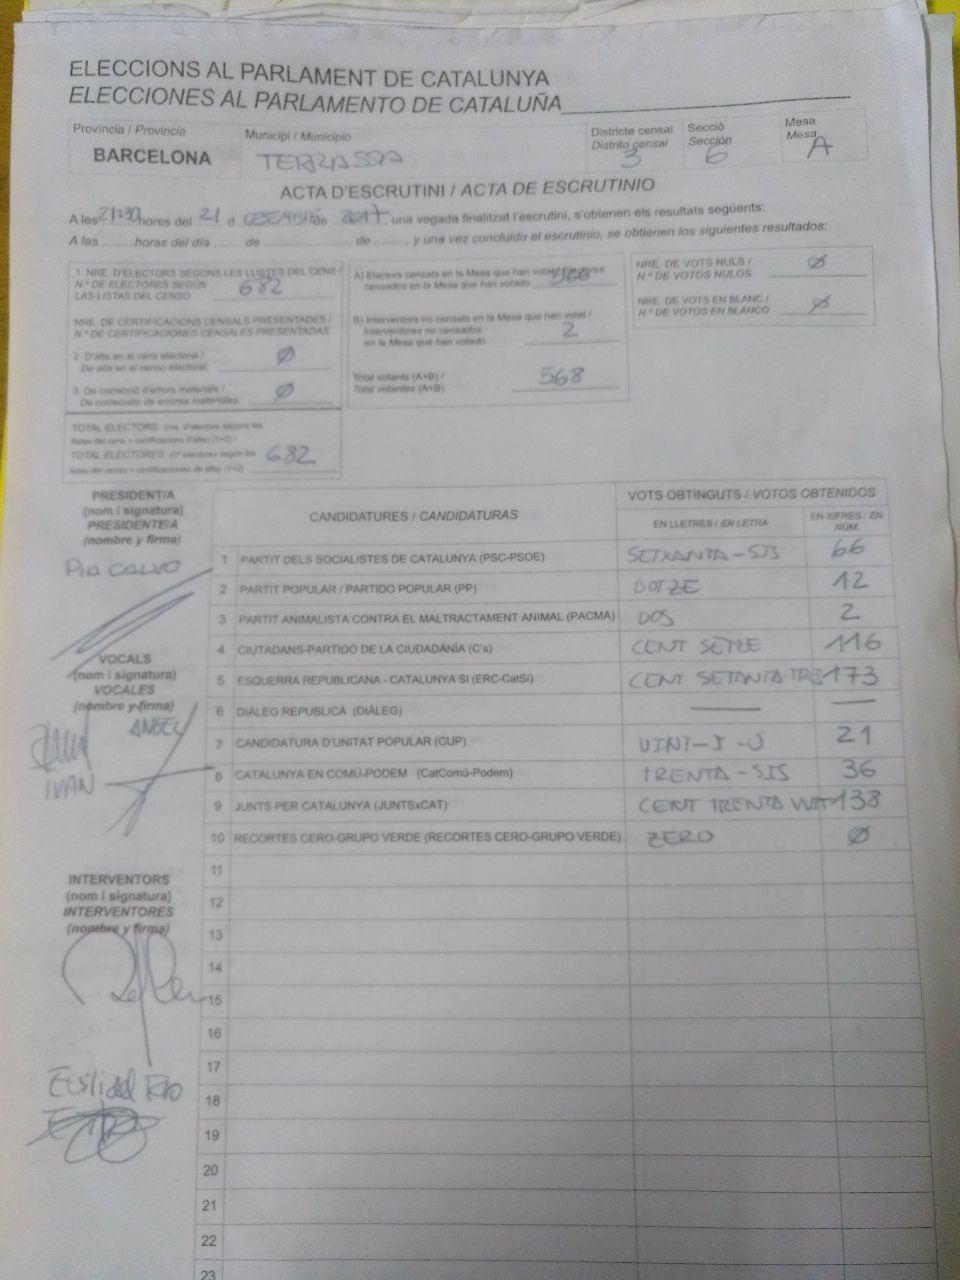 ELECCIONS AL PARLAMENT DE CATALUNYA
ELECCIONES AL PARLAMENTO DE CATALUÑA
Província / Provincia
BARCELONA
Municipi / Municipio
TERRASSA
Districte censal
Distrito censal
3
Secció
Sección
6
Mesa
Mesa
A
ACTA D'ESCRUTINI / ACTA DE ESCRUTINIO
A les 21:30 hores del 21 d DESEMBRE de 2017, una vegada finalitzat l'escrutini, s'obtenen els resultats següents:
A las ......... horas del día ....... de ....................... de ........., y una vez concluido el escrutinio, se obtienen los siguientes resultados:
1. NRE. D'ELECTORS SEGONS LES LLISTES DEL CENS /
N.º DE ELECTORES SEGÚN
LAS LISTAS DEL CENSO
682
NRE. DE CERTIFICACIONS CENSALS PRESENTADES /
N.º DE CERTIFICACIONES CENSALES PRESENTADAS
2. D'alta en el cens electoral /
De alta en el censo electoral:
Ø
3. De correcció d'errors materials /
De corrección de errores materiales:
Ø
TOTAL ELECTORS: (nre. d'electors segons les
llistes del cens + certificacions d'alta) (1+2) /
TOTAL ELECTORES: (nº electores según las
listas del censo + certificaciones de alta) (1+2)
682
A) Electors censats en la Mesa que han votat / Electores
censados en la Mesa que han votado
566
B) Interventors no censats en la Mesa que han votat /
Interventores no censados
en la Mesa que han votado
2
Total votants (A+B) /
Total votantes (A+B)
568
NRE. DE VOTS NULS /
N.º DE VOTOS NULOS
Ø
NRE. DE VOTS EN BLANC /
N.º DE VOTOS EN BLANCO
Ø
PRESIDENT/A
(nom i signatura)
PRESIDENTE/A
(nombre y firma)
PIA CALVO
VOCALS
(nom i signatura)
VOCALES
(nombre y firma)
ANGEL
IVAN
INTERVENTORS
(nom i signatura)
INTERVENTORES
(nombre y firma)
CANDIDATURES / CANDIDATURAS
VOTS OBTINGUTS / VOTOS OBTENIDOS
EN LLETRES / EN LETRA
EN XIFRES / EN NÚM.
1 PARTIT DELS SOCIALISTES DE CATALUNYA (PSC-PSOE) SEIXANTA-SIS 66
2 PARTIT POPULAR / PARTIDO POPULAR (PP) DOTZE 12
3 PARTIT ANIMALISTA CONTRA EL MALTRACTAMENT ANIMAL (PACMA) DOS 2
4 CIUTADANS-PARTIDO DE LA CIUDADANÍA (C's) CENT SETZE 116
5 ESQUERRA REPUBLICANA - CATALUNYA SI (ERC-CatSí) CENT SETANTA-TRES 173
6 DIÀLEG REPUBLICÀ (DIÀLEG) — —
7 CANDIDATURA D'UNITAT POPULAR (CUP) VINT-I-U 21
8 CATALUNYA EN COMÚ-PODEM (CatComú-Podem) TRENTA-SIS 36
9 JUNTS PER CATALUNYA (JUNTSxCAT) CENT TRENTA VUIT 138
10 RECORTES CERO-GRUPO VERDE (RECORTES CERO-GRUPO VERDE) ZERO Ø
11
12
13
14
15
16
17
18
19
20
21
22
23